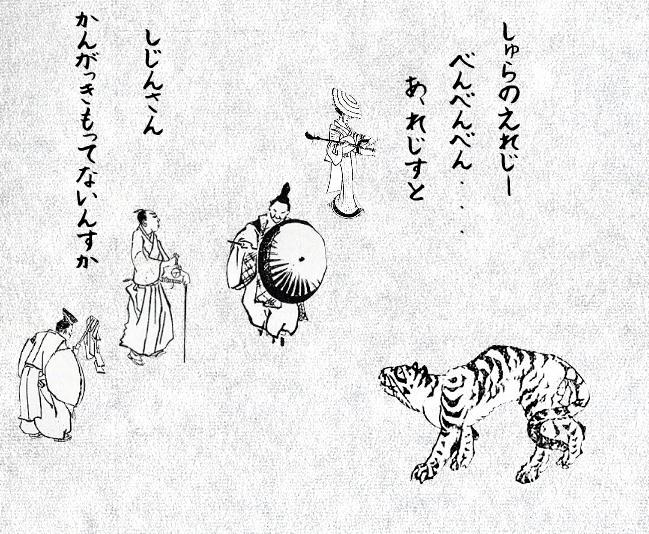 しゅらのえれじー
べんべんべん・・・・
あ、れじすと
しじんさん
かんがっきもってないんすか